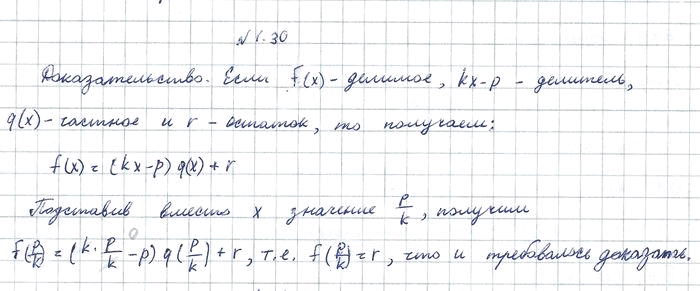 № 1.30
Доказательство. Если f(x) - делимое, kx-p - делитель,
q(x) - частное и r - остаток, то получаем:
f(x) = (kx-p) q(x) + r
Подставив вместо x значение p/k, получим
f(p/k) = (k · p/k - p) q(p/k) + r, т.е. f(p/k) = r, что и требовалось доказать.